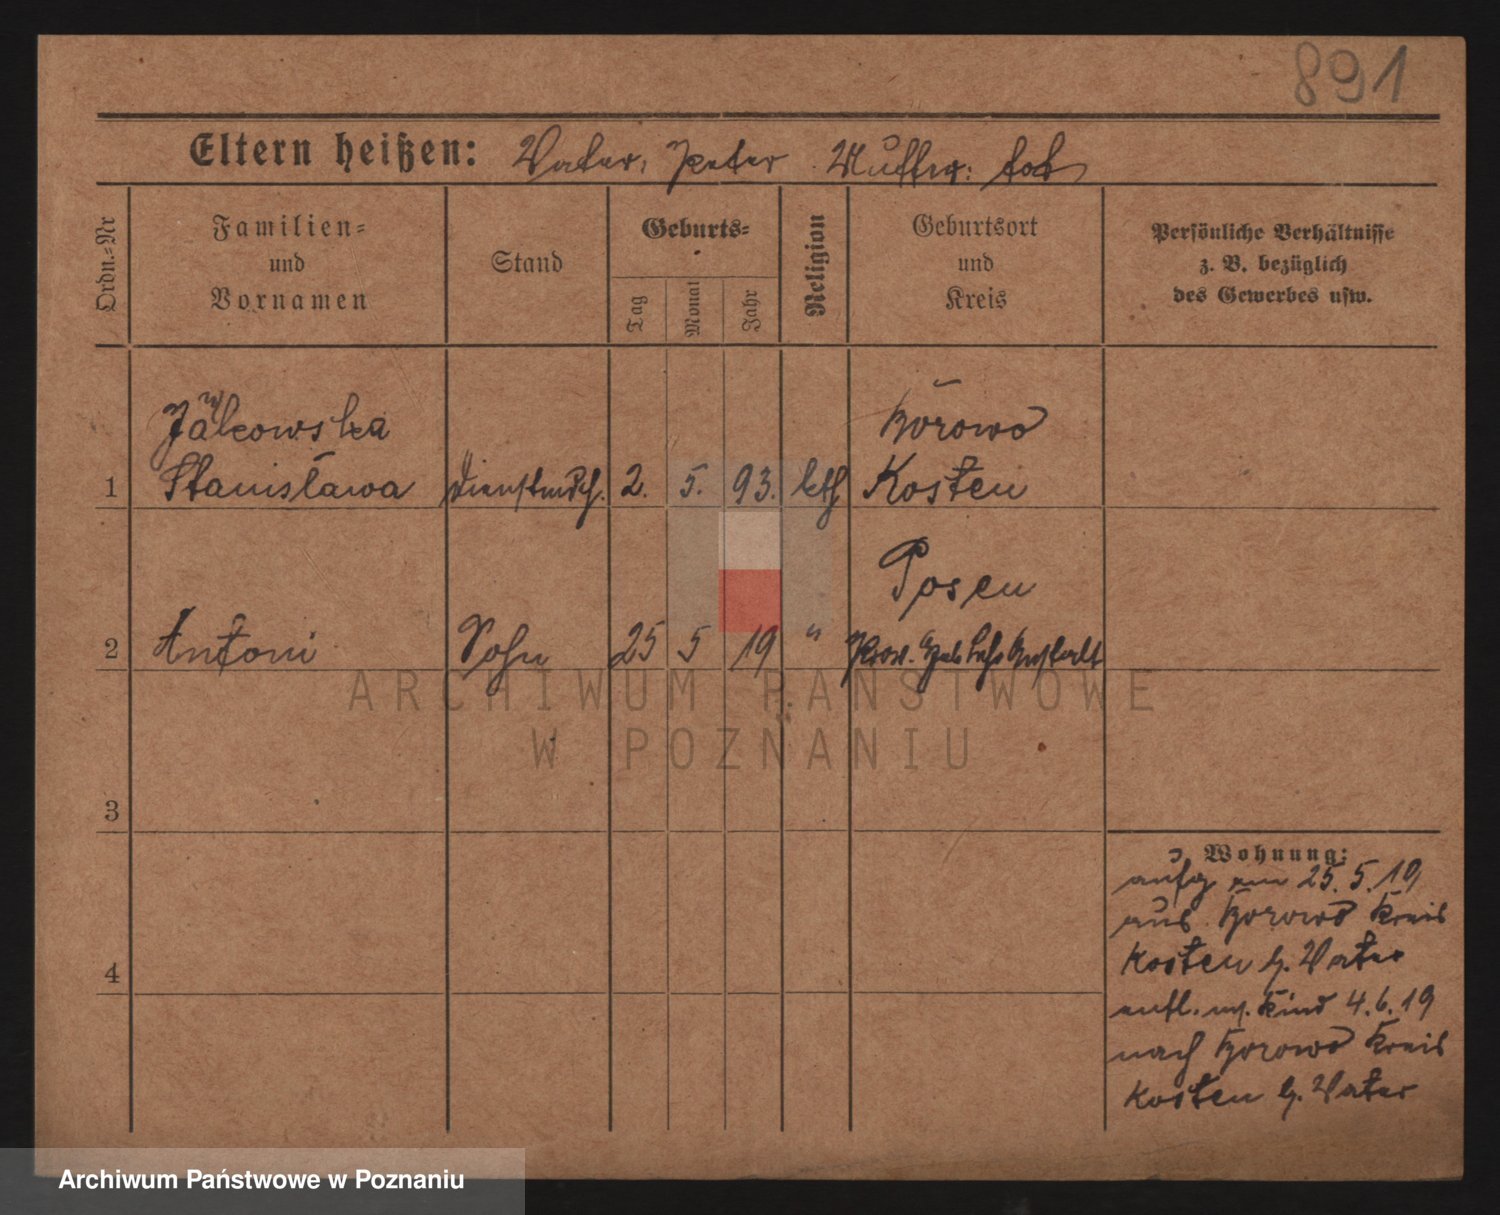 891
Eltern heißen: Vater: Peter Mutter: tot
Ordn.-Nr
Familien-
und
Vornamen
Stand
Geburts-
Tag
Monat
Jahr
Religion
Geburtsort
und
Kreis
Persönliche Verhältnisse
z. B. bezüglich
des Gewerbes usw.
Borowo
1 Stanisława Dienstmdch. 2. 5. 93. kth Kosten
Posen
2 Antoni Sohn 25 5 19 " Prov. Anstalt
3
4
Wohnung:
aufg am 25.5.19
aus Borowo Kreis
Kosten b. Vater
entl. m. Kind 4.6.19
nach Borowo Kreis
Kosten b. Vater
ARCHIWUM PAŃSTWOWE
W POZNANIU
Archiwum Państwowe w Poznaniu